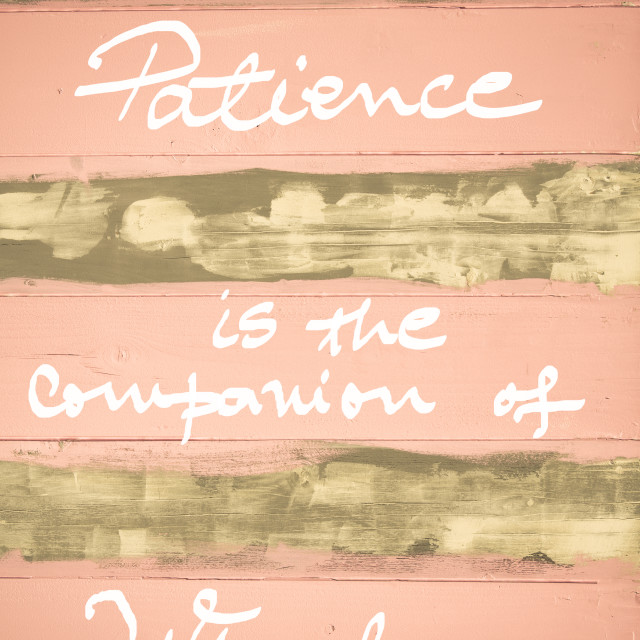 Patience
is the
companion of